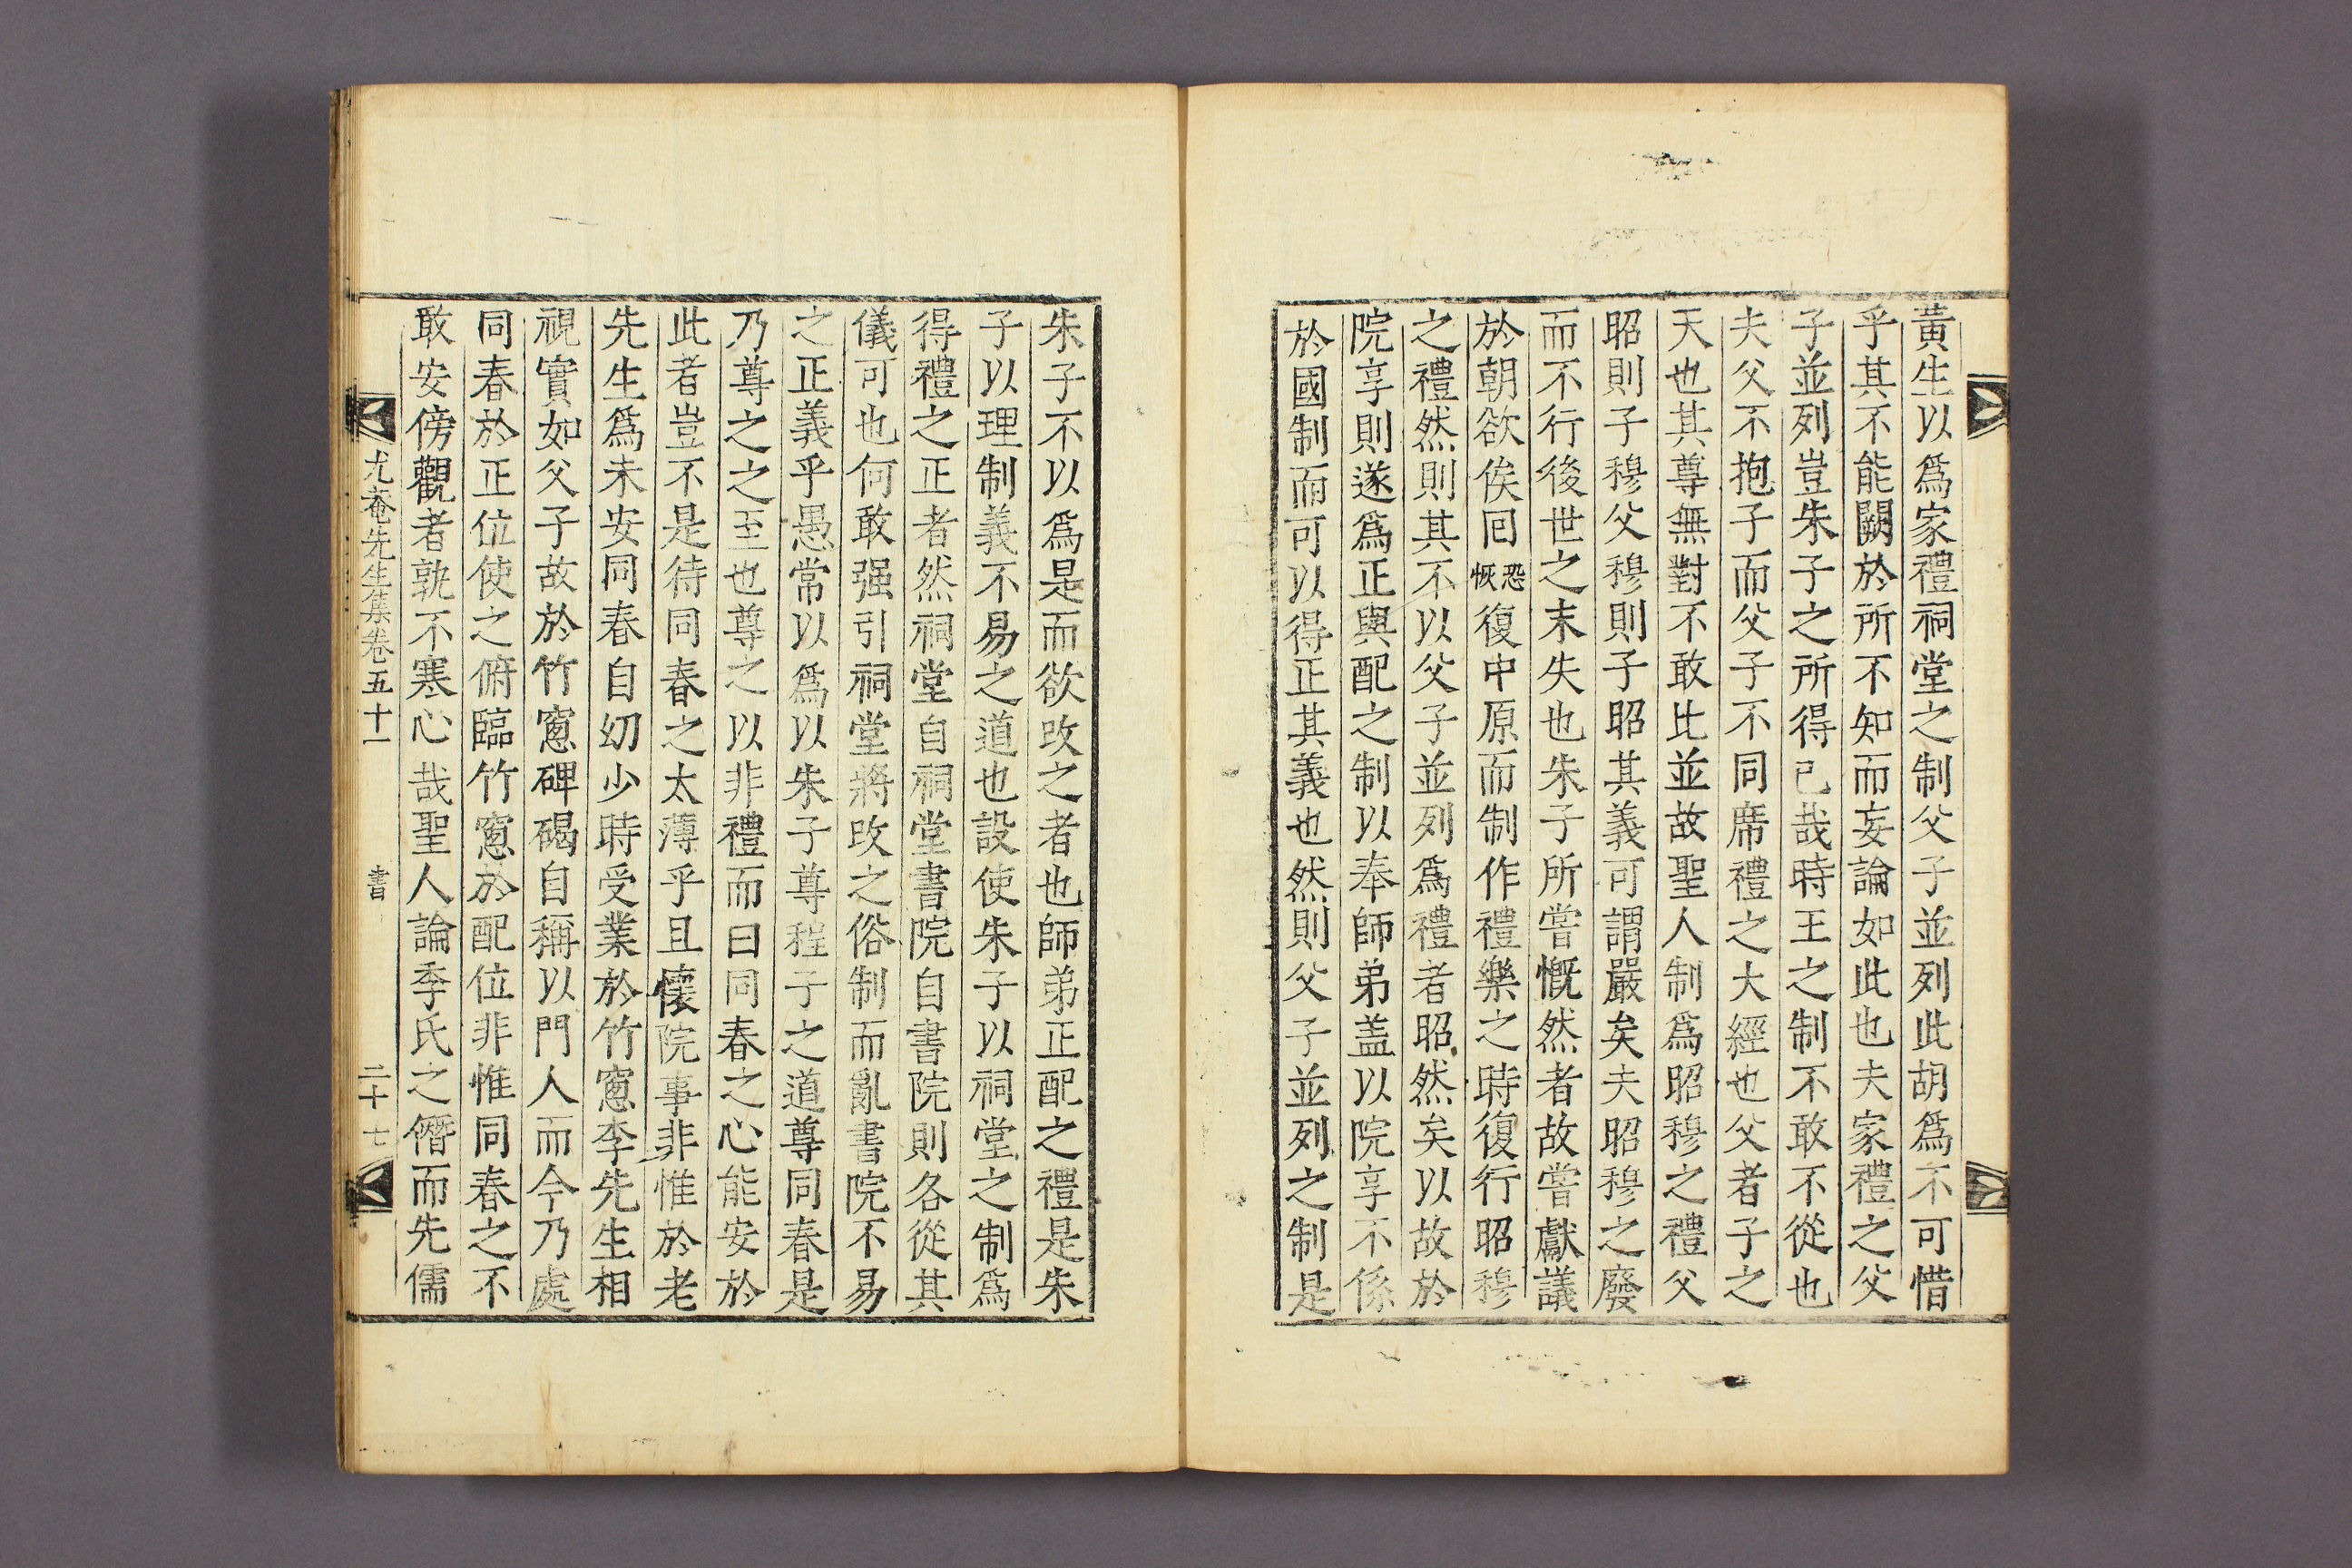 黃生以爲家禮祠堂之制父子並列此胡爲不可惜
乎其不能闕於所不知而妄論如此也夫家禮之父
子並列豈朱子之所得已哉時王之制不敢不從也
夫父不抱子而父子不同席禮之大經也父者子之
天也其尊無對不敢比並故聖人制爲昭穆之禮父
昭則子穆父穆則子昭其義可謂嚴矣夫昭穆之廢
而不行後世之末失也朱子所嘗慨然者故嘗獻議
於朝欲俟囘恐恢復中原而制作禮樂之時復行昭穆
之禮然則其不以父子並列爲禮者昭然矣以故於
院享則遂爲正與配之制以奉師弟盖以院享不係
於國制而可以得正其義也然則父子並列之制是
朱子不以爲是而欲改之者也師弟正配之禮是朱
子以理制義不易之道也設使朱子以祠堂之制爲
得禮之正者然祠堂自祠堂書院自書院則各從其
儀可也何敢强引祠堂將改之俗制而亂書院不易
之正義乎愚常以爲以朱子尊程子之道尊同春是
乃尊之之至也尊之以非禮而曰同春之心能安於
此者豈不是待同春之太薄乎且懷院事非惟於老
先生爲未安同春自幼少時受業於竹窻李先生相
視實如父子故於竹窻碑碣自稱以門人而今乃處
同春於正位使之俯臨竹窻於配位非惟同春之不
敢安傍觀者孰不寒心哉聖人論季氏之僭而先儒
尤菴先生集卷五十一 書 二十七